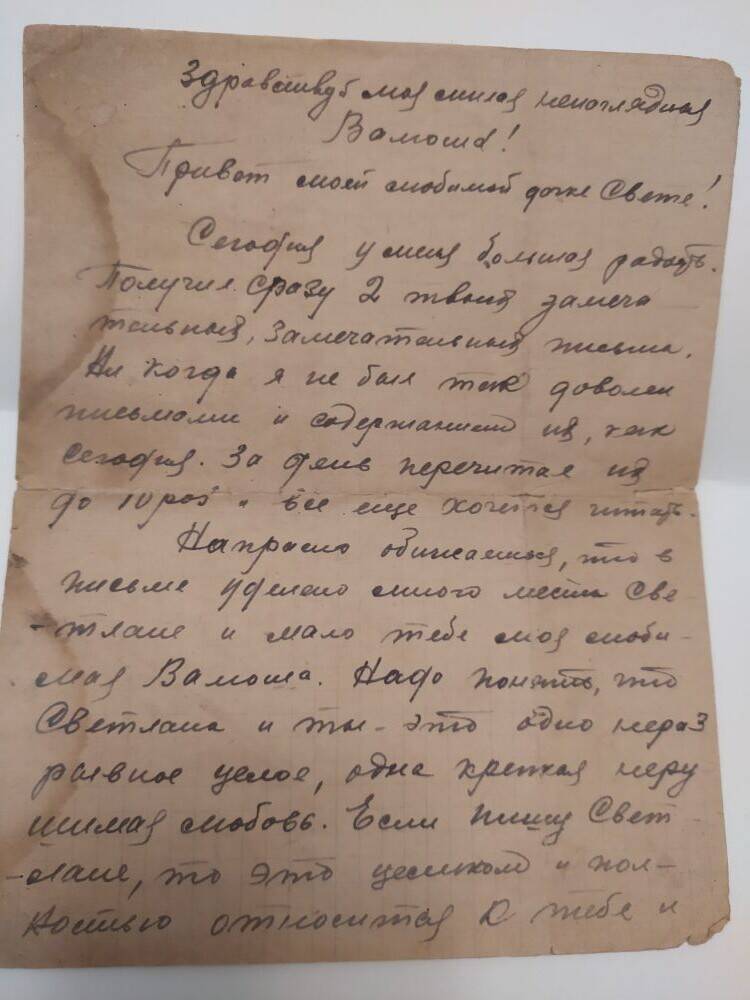 Здравствуй моя милая ненаглядная
Валюша!
Привет моей любимой дочке Свете!
Сегодня у меня большая радость.
Получил сразу 2 твоих замеча
тельных, замечательных письма.
Ни когда я не был так доволен
письмами и содержанием их, как
сегодня. За день перечитал их
до 10 раз и все еще хочется читать.
Напрасно обижаешься, что в
письме уделено много места Све-
-тлане и мало тебе моя люби-
мая Валюша. Надо понять, что
Светлана и ты - это одно нераз
рывное целое, одна крепкая неру
шимая любовь. Если пишу Свет-
-лане, то это целиком и пол-
ностью относится к тебе и